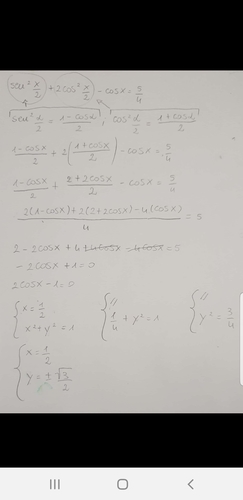 sen² x/2 + 2cos² x/2 - cosx = 5/4
sen² α/2 = 1-cosα/2 , cos² α/2 = 1+cosα/2
1-cosx/2 + 2(1+cosx/2) - cosx = 5/4
1-cosx/2 + 2+2cosx/2 - cosx = 5/4
2(1-cosx)+2(2+2cosx)-4(cosx)/4 = 5
2-2cosx+4+4cosx-4cosx=5
-2cosx+1=0
2cosx-1=0
{ x=1/2
x²+y²=1
{ //
1/4 + y²=1
{ //
y²=3/4
{ x=1/2
y=±√3/2